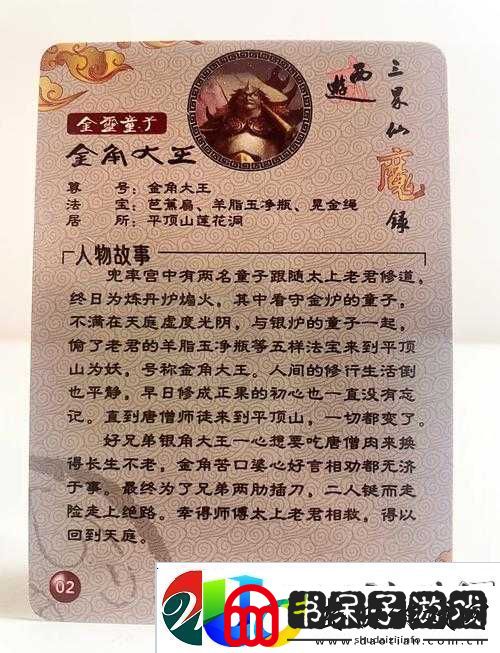 三界仙魔录
西遊
金灵童子
金角大王
尊 号：金角大王
法 宝：芭蕉扇、羊脂玉净瓶、晃金绳
居 所：平顶山莲花洞
人物故事
兜率宫中有两名童子跟随太上老君修道，
终日为炼丹炉煽火，其中看守金炉的童子，
不满在天庭虚度光阴，与银炉的童子一起，
偷了老君的羊脂玉净瓶等五样法宝来到平顶
山为妖，号称金角大王。人间的修行生活倒
也平静，早日修成正果的初心也一直没有忘
记。直到唐僧师徒来到平顶山，一切都变了。
好兄弟银角大王一心想要吃唐僧肉来换
得长生不老，金角苦口婆心好言相劝都无济
于事。最终为了兄弟两肋插刀，二人铤而走
险走上绝路。幸得师傅太上老君相救，得以
回到天庭。
02
书呆子游戏
shudaiziinfo
www.daozian.com.cn